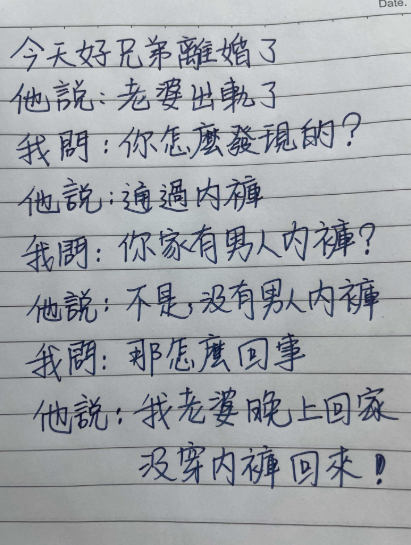 Date.
今天好兄弟離婚了
他說：老婆出軌了
我問：你怎麼發現的？
他說：通過內褲
我問：你家有男人內褲？
他說：不是，沒有男人內褲
我問：那怎麼回事
他說：我老婆晚上回家
沒穿內褲回來！